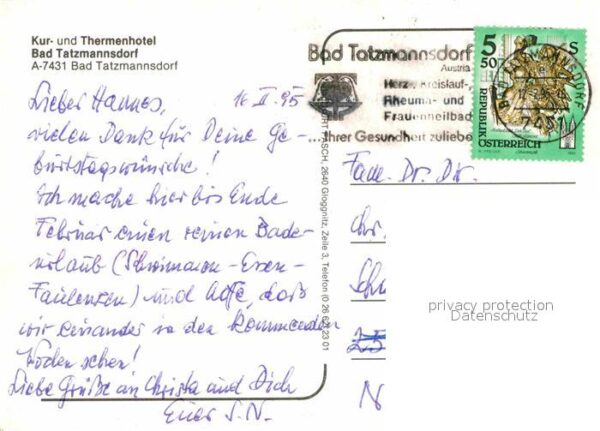 Kur- und Thermenhotel
Bad Tatzmannsdorf
A-7431 Bad Tatzmannsdorf
Lieber Hannes, 16. II. 95
vielen Dank für Deine Ge-
burtstagswünsche!
Ich mache hier bis Ende
Februar einen reinen Bade-
urlaub (Schwimmen - Essen -
Faulenzen) und hoffe, daß
wir einander in den kommenden
Wochen sehen!
Liebe Grüße an Christa und Dich
Euer S.N.
2640 Gloggnitz, Zeile 3, Telefon (0 26 62) 23 01
Bad Tatzmannsdorf
Austria
Herz-, Kreislauf-,
Rheuma- und
Frauenheilbad
...Ihrer Gesundheit zuliebe
5 50 S
REPUBLIK
ÖSTERREICH
7431
Fam. Dr. Dir.
Chr.
Schu
25
N
privacy protection
Datenschutz